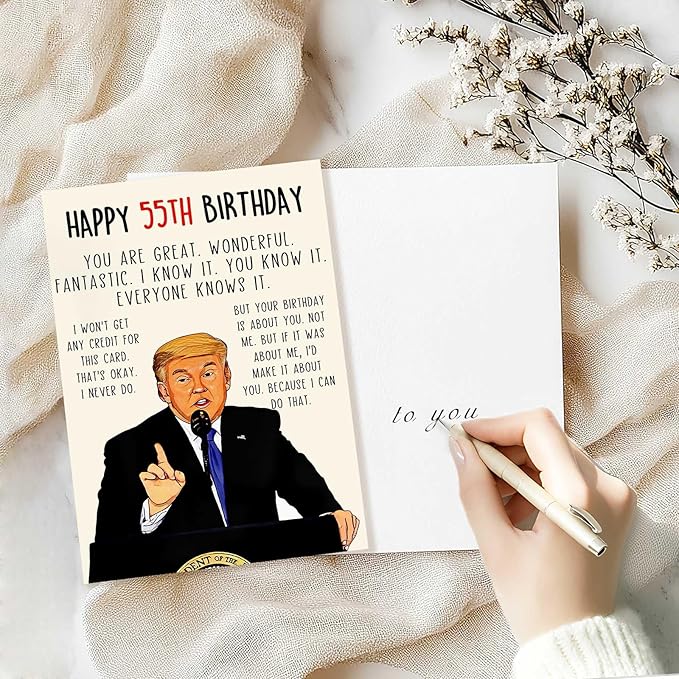 HAPPY 55TH BIRTHDAY
YOU ARE GREAT. WONDERFUL.
FANTASTIC. I KNOW IT. YOU KNOW IT.
EVERYONE KNOWS IT.
I WON'T GET
ANY CREDIT FOR
THIS CARD.
THAT'S OKAY.
I NEVER DO.
BUT YOUR BIRTHDAY
IS ABOUT YOU. NOT
ME. BUT IF IT WAS
ABOUT ME, I'D
MAKE IT ABOUT
YOU. BECAUSE I CAN
DO THAT.
DENT OF THE
to you